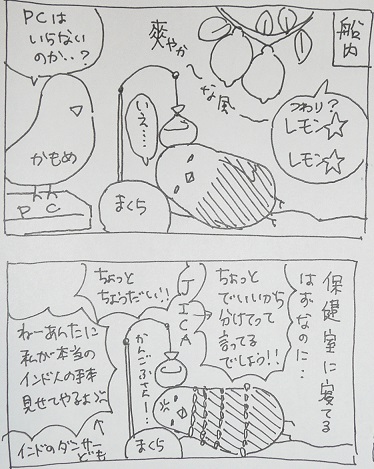 船内
PCは
いらない
のか‥?
爽やか
な風
つわり?
レモン☆
レモン☆
いえ‥‥
かもめ
PC
まくら
保健室に寝てる
はずなのに‥
ちょっと
でいいから
分けてって
言ってる
でしょう!!
JICA
ちょっと
ちょうだい!!
かんごふさんー‥
ねーあんたに
私が本当の
インド人の事
見せてやるよ
まくら
インドのダンサー
ども